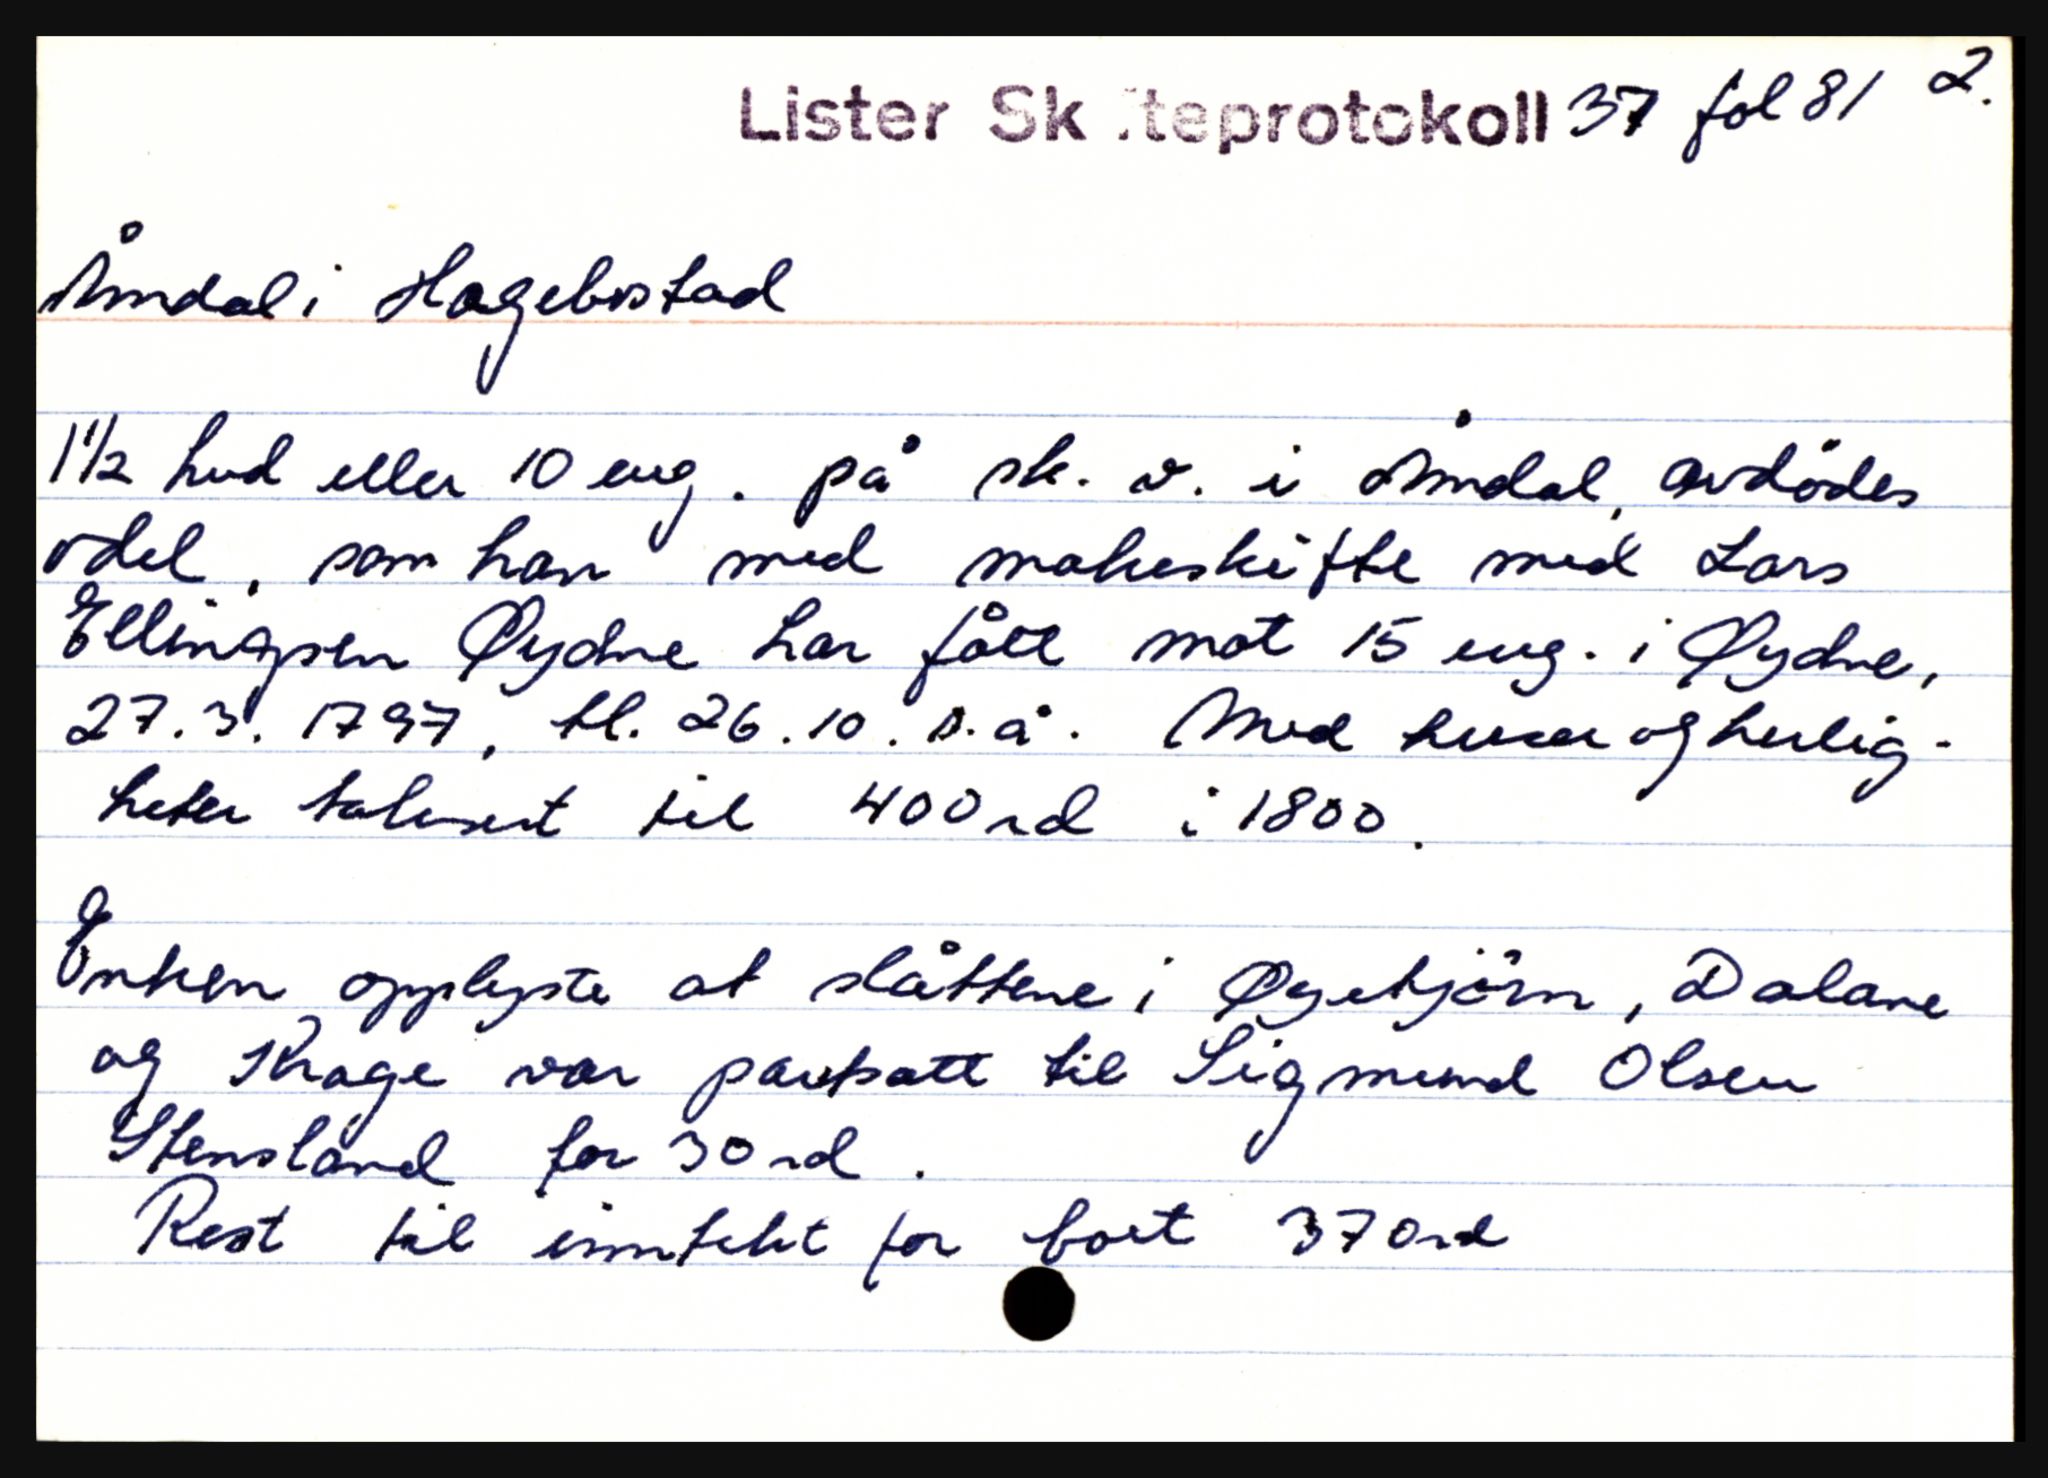 Lister Sk iteprotokoll 37 fol 81 2.
Åmdal i Hægebostad
1 1/2 hud eller 10 eng. på sk. v. i Åmdal, avdödes
odel, som han med makeskifte med Lars
Ellingsen Øydne har fått mot 15 eng. i Øydne,
27.3. 1797, tl. 26.10. s.å. Med huser og herlig-
heter taksert til 400 rd i 1800.
Enken opplyste at slåttene i Øyetjörn, Dalane
og Krage var pantsatt til Sigmund Olsen
Stensland for 30 rd.
Rest til inntekt for boet 370 rd